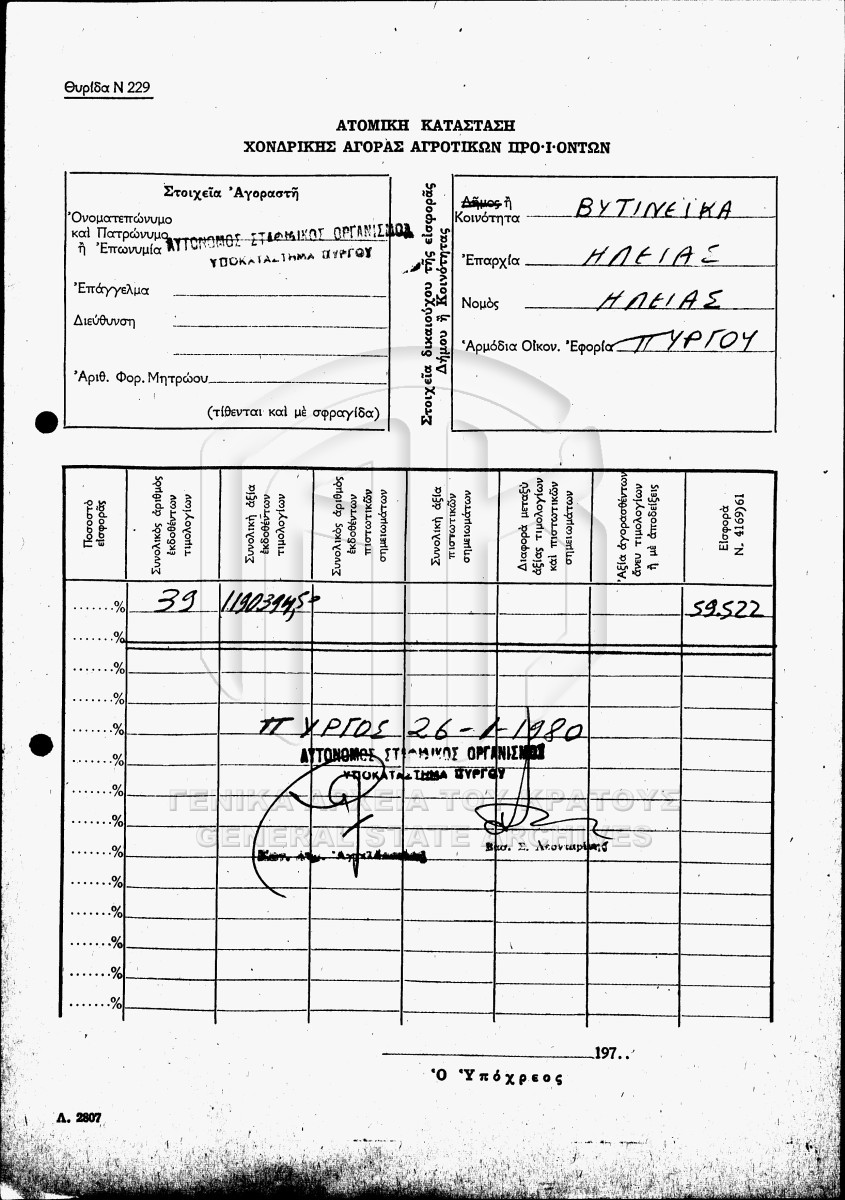 Θυρίδα Ν 229
ΑΤΟΜΙΚΗ ΚΑΤΑΣΤΑΣΗ
ΧΟΝΔΡΙΚΗΣ ΑΓΟΡΑΣ ΑΓΡΟΤΙΚΩΝ ΠΡΟ·Ι·ΟΝΤΩΝ
Στοιχεῖα Ἀγοραστῆ
Ὀνοματεπώνυμο
καὶ Πατρώνυμο
ἢ Ἐπωνυμία ΑΥΤΟΝΟΜΟΣ ΣΤΑΦΙΔΙΚΟΣ ΟΡΓΑΝΙΣΜΟΣ
ΥΠΟΚΑΤΑΣΤΗΜΑ ΠΥΡΓΟΥ
Ἐπάγγελμα
Διεύθυνση
Ἀριθ. Φορ. Μητρώου
(τίθενται καὶ μὲ σφραγίδα)
Στοιχεῖα δικαιούχου τῆς εἰσφορᾶς
Δήμου ἢ Κοινότητας
Δῆμος ἢ
Κοινότητα ΒΥΤΙΝΕΪΚΑ
Ἐπαρχία ΗΛΕΙΑΣ
Νομὸς ΗΛΕΙΑΣ
Ἁρμόδια Οἰκον. Ἐφορία ΠΥΡΓΟΥ
Ποσοστό
εἰσφορᾶς
Συνολικὸς ἀριθμὸς
ἐκδοθέντων
τιμολογίων
Συνολικὴ ἀξία
ἐκδοθέντων
τιμολογίων
Συνολικὸς ἀριθμὸς
ἐκδοθέντων
πιστωτικῶν
σημειωμάτων
Συνολικὴ ἀξία
πιστωτικῶν
σημειωμάτων
Διαφορὰ μεταξὺ
ἀξίας τιμολογίων
καὶ πιστωτικῶν
σημειωμάτων
Ἀξία ἀγορασθέντων
ἄνευ τιμολογίων
ἢ μὲ ἀποδείξεις
Εἰσφορὰ
Ν. 4169)61
.......% 39 1190394,50 59.522
.......%
.......%
.......%
.......% ΠΥΡΓΟΣ 26-1-1980
.......% ΑΥΤΟΝΟΜΟΣ ΣΤΑΦΙΔΙΚΟΣ ΟΡΓΑΝΙΣΜΟΣ
ΥΠΟΚΑΤΑΣΤΗΜΑ ΠΥΡΓΟΥ
.......%
ΓΕΝΙΚΑ ΑΡΧΕΙΑ ΤΟΥ ΚΡΑΤΟΥΣ
.......%
GENERAL STATE ARCHIVES
.......% Βασ. Σ. Λεονταρίτης
.......%
.......%
.......%
.......%
.......%
197..
Ὁ Ὑπόχρεος
Λ. 2807